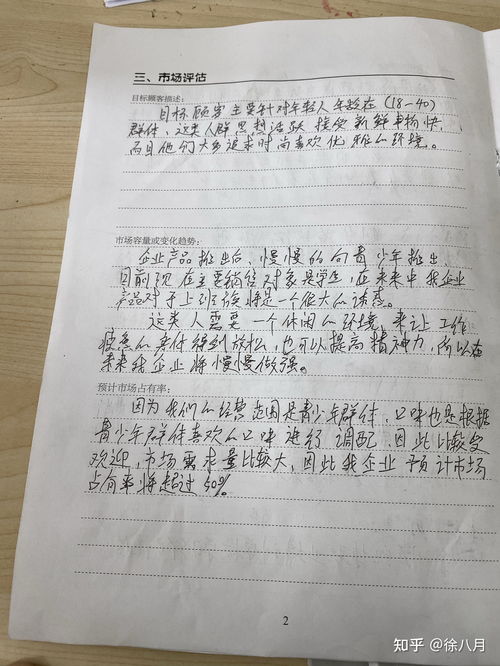 三、市场评估
目标顾客描述：
目标顾客主要针对年轻人年龄在（18-40）
群体，这类人群思想活跃接受新鲜事物快，
而且他们大多追求时尚喜欢优雅的环境。
市场容量或变化趋势：
企业产品推出后，慢慢的向青少年推出
目前现在主要销售对象是学生，在未来中我企业
产品对于上班族将是一个很大的诱惑。
这类人需要一个休闲的环境，来让工作
疲惫的身体得到放松，也可以提高精神力，所以在
未来我企业将慢慢做强。
预计市场占有率：
因为我们的经营范围是青少年群体，口味也是根据
青少年群体喜欢的口味进行调配，因此比较受
欢迎，市场需求量比较大，因此我企业预计市场
占有率将超过50%。
2
知乎 @徐八月